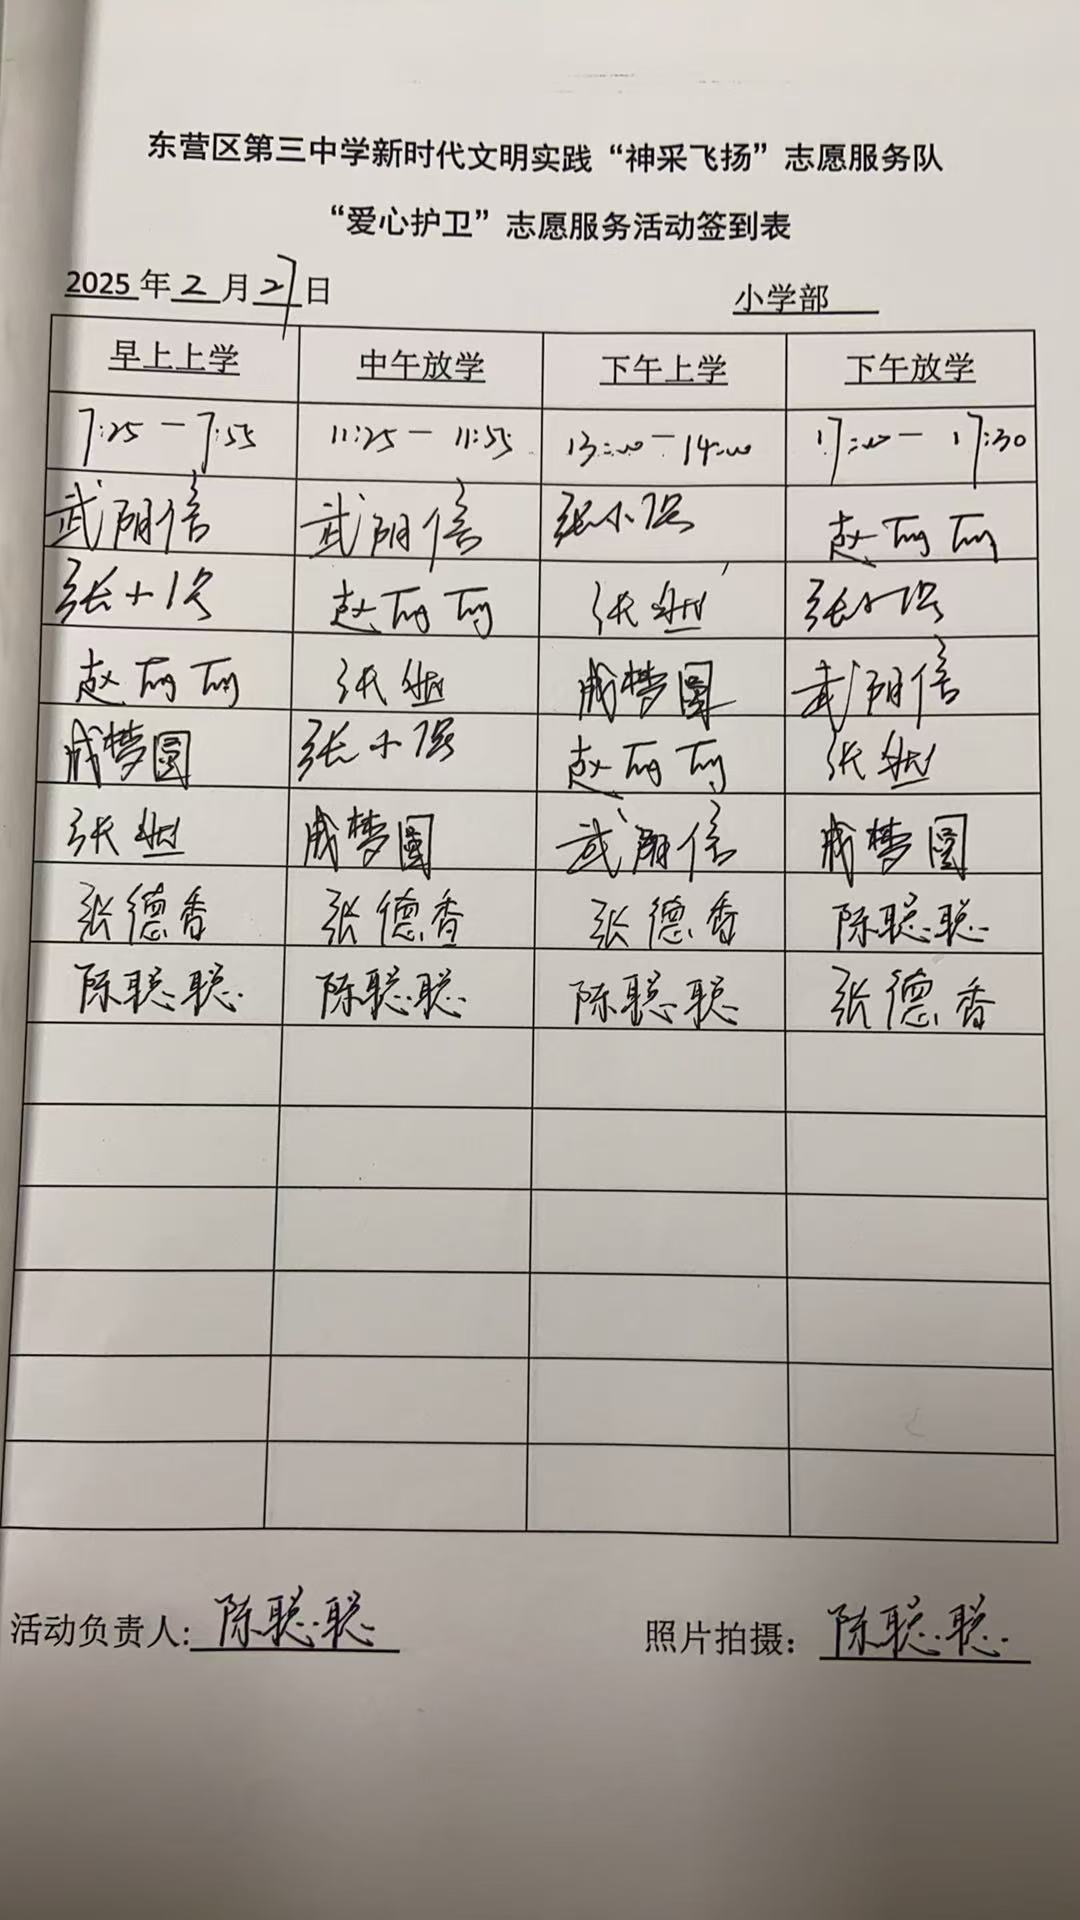 东营区第三中学新时代文明实践“神采飞扬”志愿服务队
“爱心护卫”志愿服务活动签到表
2025年2月27日 小学部
早上上学 中午放学 下午上学 下午放学
7:25-7:55 11:25-11:55 13:30-14:00 17:00-17:30
武 信 武 信 张小强 赵丽丽
张小强 赵丽丽 张 张小强
赵丽丽 张 成梦圆 武 信
成梦圆 张小强 赵丽丽 张
张 成梦圆 武 信 成梦圆
张德香 张德香 张德香 陈聪聪
陈聪聪 陈聪聪 陈聪聪 张德香
活动负责人:陈聪聪 照片拍摄：陈聪聪